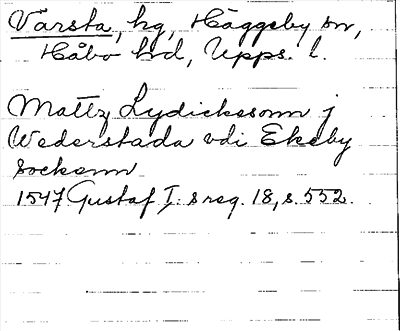 Varsta, hg, Häggeby sn,
Håbo hd, Upps. l.
Mattz Lydickssonn j
Wederstada vdi Ekeby
Sockenn
1547 Gustaf I:s reg. 18, s. 552.